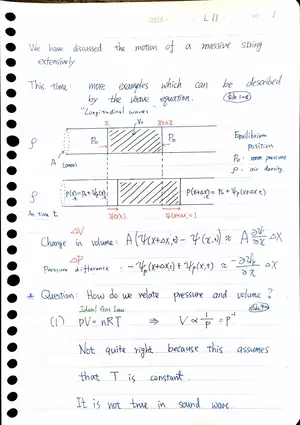 L 11 1
We have discussed the motion of a massive string
extensively
This time: more examples which can be described
by the wave equation.
"Longitudinal waves"
x x+Δx
ρ P₀ P₀
Equilibrium
position
P₀ : room pressure
ρ : air density
A
ρ P(x)=P₀+ψp(x) P(x+Δx)=P₀+ψp(x+Δx,t)
At time t ψ(x,t) ψ(x+Δx,t)
ΔV
Change in volume: A(ψ(x+Δx,t) - ψ(x,t)) ≈ A ∂ψ/∂x Δx
ΔP
Pressure difference = -ψp(x+Δx,t)+ψp(x,t) ≈ -∂ψp/∂x Δx
* Question: How do we relate pressure and volume?
Ideal Gas Law
(1) PV = nRT ⇒ V ∝ 1/P = P⁻¹
Not quite right because this assumes
that T is constant.
It is not true in sound wave.